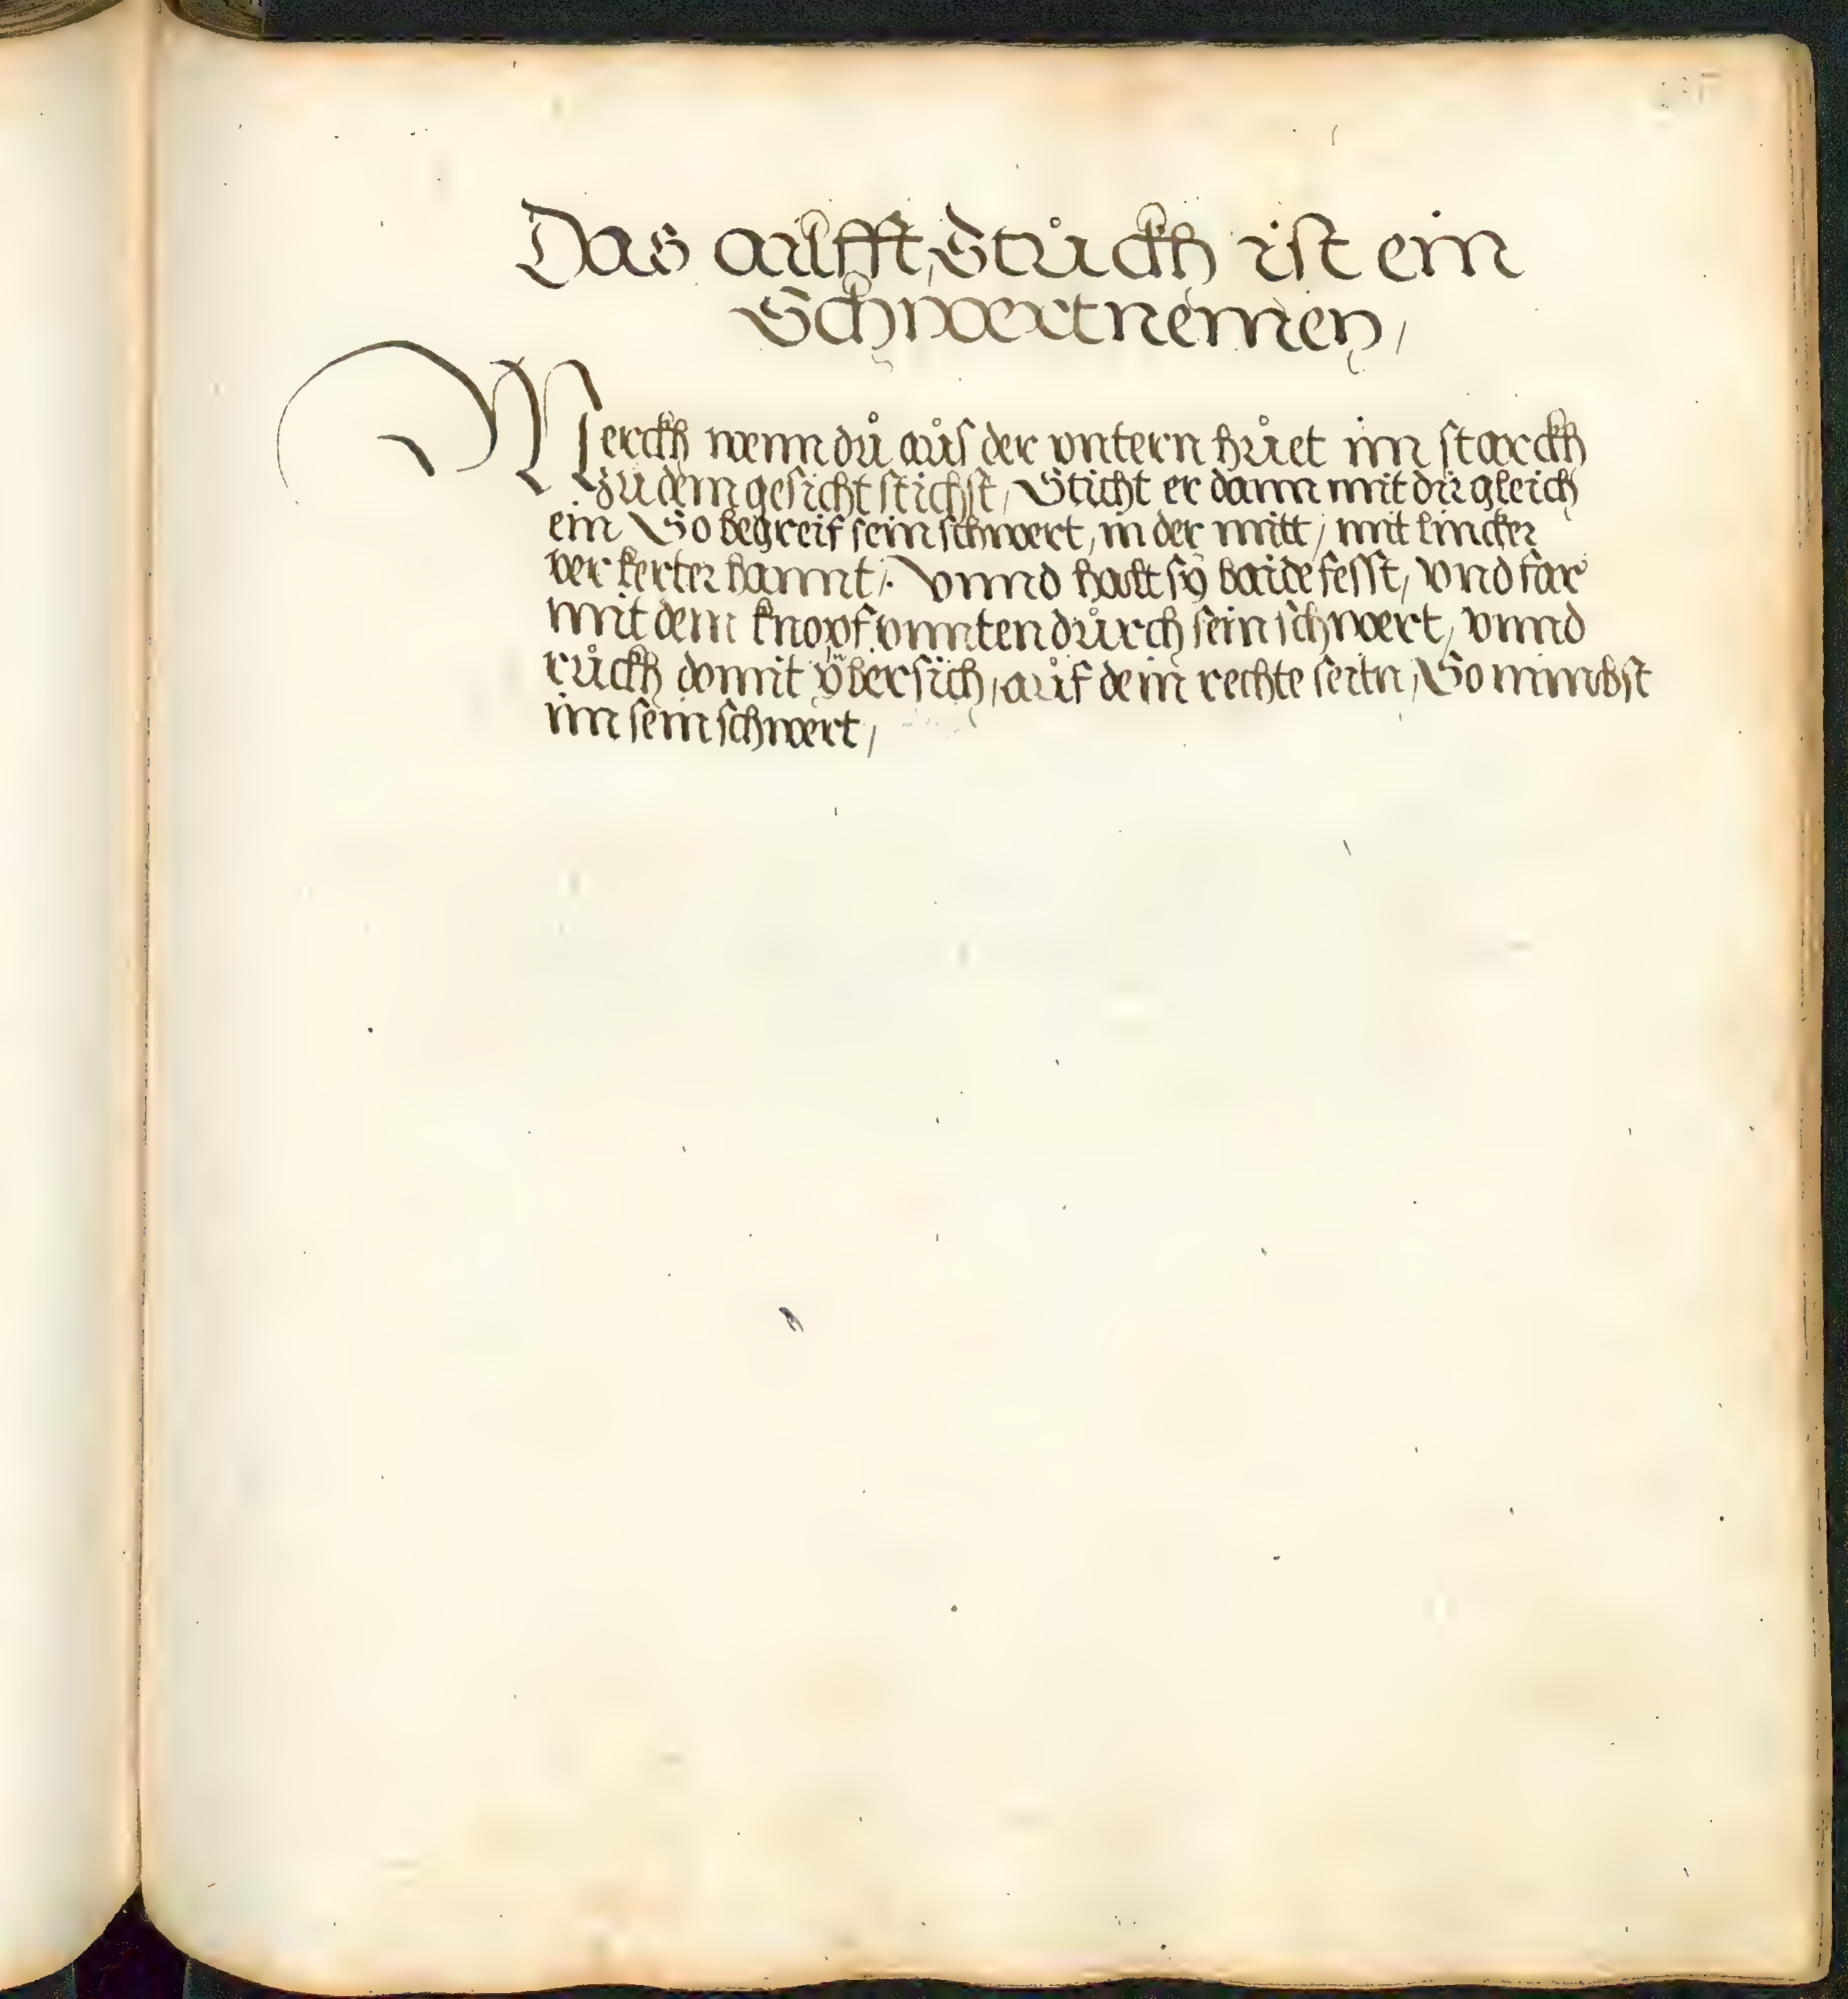 Das ailfft, Stuckh ist ein
Schwertnemen,
Merckh wenn dů aůs der vntern hůet im starckh
zu dem gesicht stichst, Sticht er dann mit dir gleich
ein So begreif sein schwert, in der mitt, mit lincker
verkerter hannt, Vnnd halt sÿ baide fesst, vnd far
mit dem knopf vnnten důrch sein schwert, vnnd
růckh domit ÿbersich, aůf dein rechte seitn, So nimbst
im sein schwert,